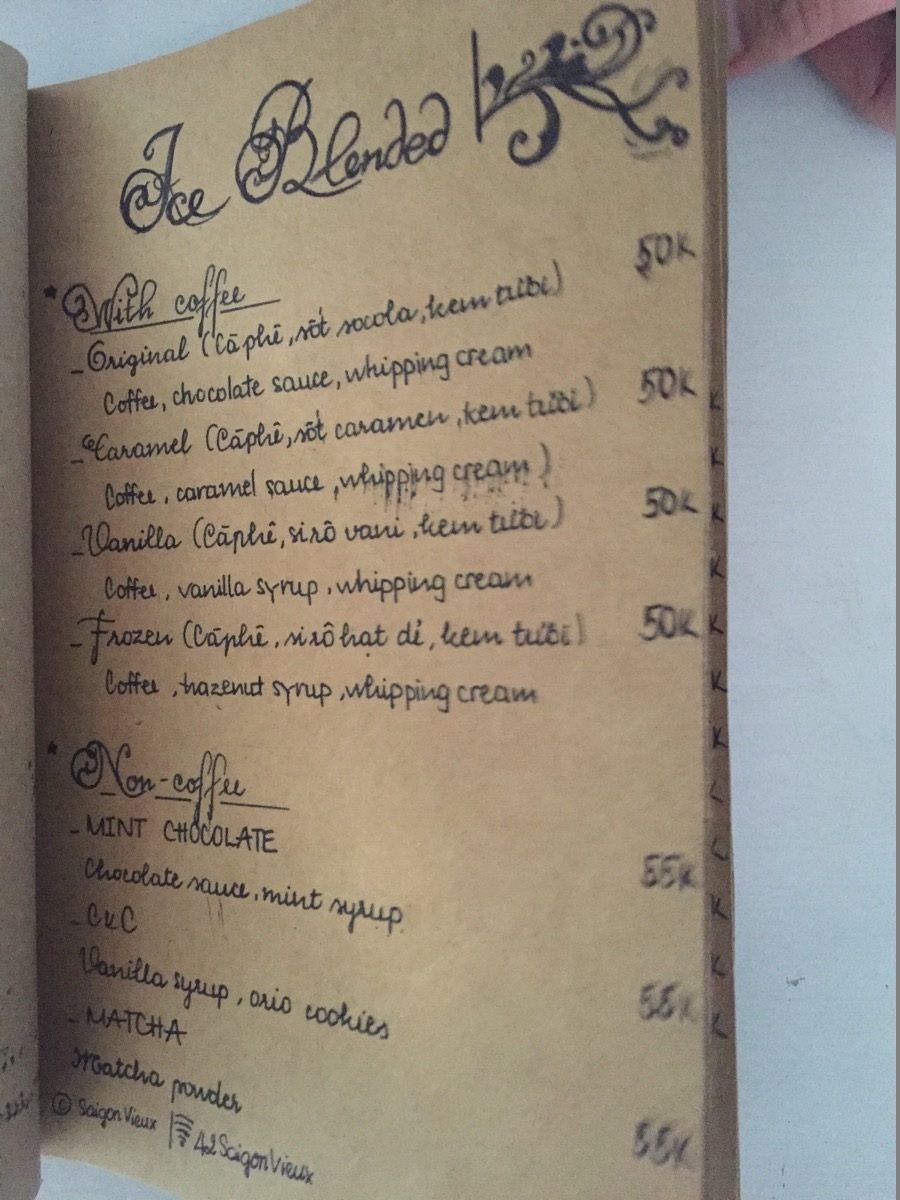 Ice Blended
* With coffee
- Original (Cāphē, sốt socola, kem tươi) 50K
Coffee, chocolate sauce, whipping cream
- Caramel (Cāphê, sốt caramen, kem tươi) 50K
Coffee, caramel sauce, whipping cream)
- Vanilla (Cāphê, sirô vani, kem tươi) 50K
Coffee, vanilla syrup, whipping cream
- Frozen (Cāphê, sirô hạt dẻ, kem tươi) 50K
Coffee, hazenut syrup, whipping cream
* Non-coffee
- MINT CHOCOLATE
Chocolate sauce, mint syrup 55K
- C&C
Vanilla syrup, orio cookies 55K
- MATCHA
Matcha powder 55K
© Saigon Vieux 42SaigonVieux
K
K
K
K
K
K
K
K
K
K